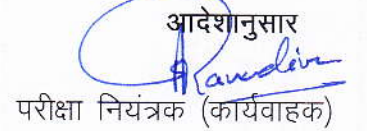 आदेशानुसार
परीक्षा नियंत्रक (कार्यवाहक)